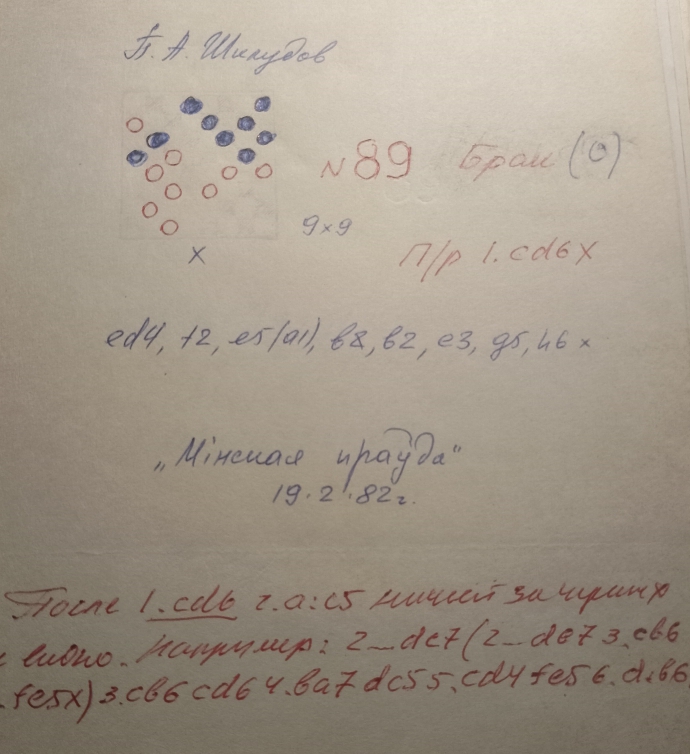 П. А. Шклудов
№89 Брак (0)
9х9
х
П/р 1.cd6X
ed4, f2, e5(a1), b8, b2, e3, g5, h6 x
„Мінская праўда"
19.2.82г.
После 1.cd6 г.a:c5 ничьей за черных
видно. Например: 2...dc7(2...de7 3.cb6
.fe5x) 3.cb6 cd6 4.ba7 dc5 5.cd4 fe5 6.d:b6